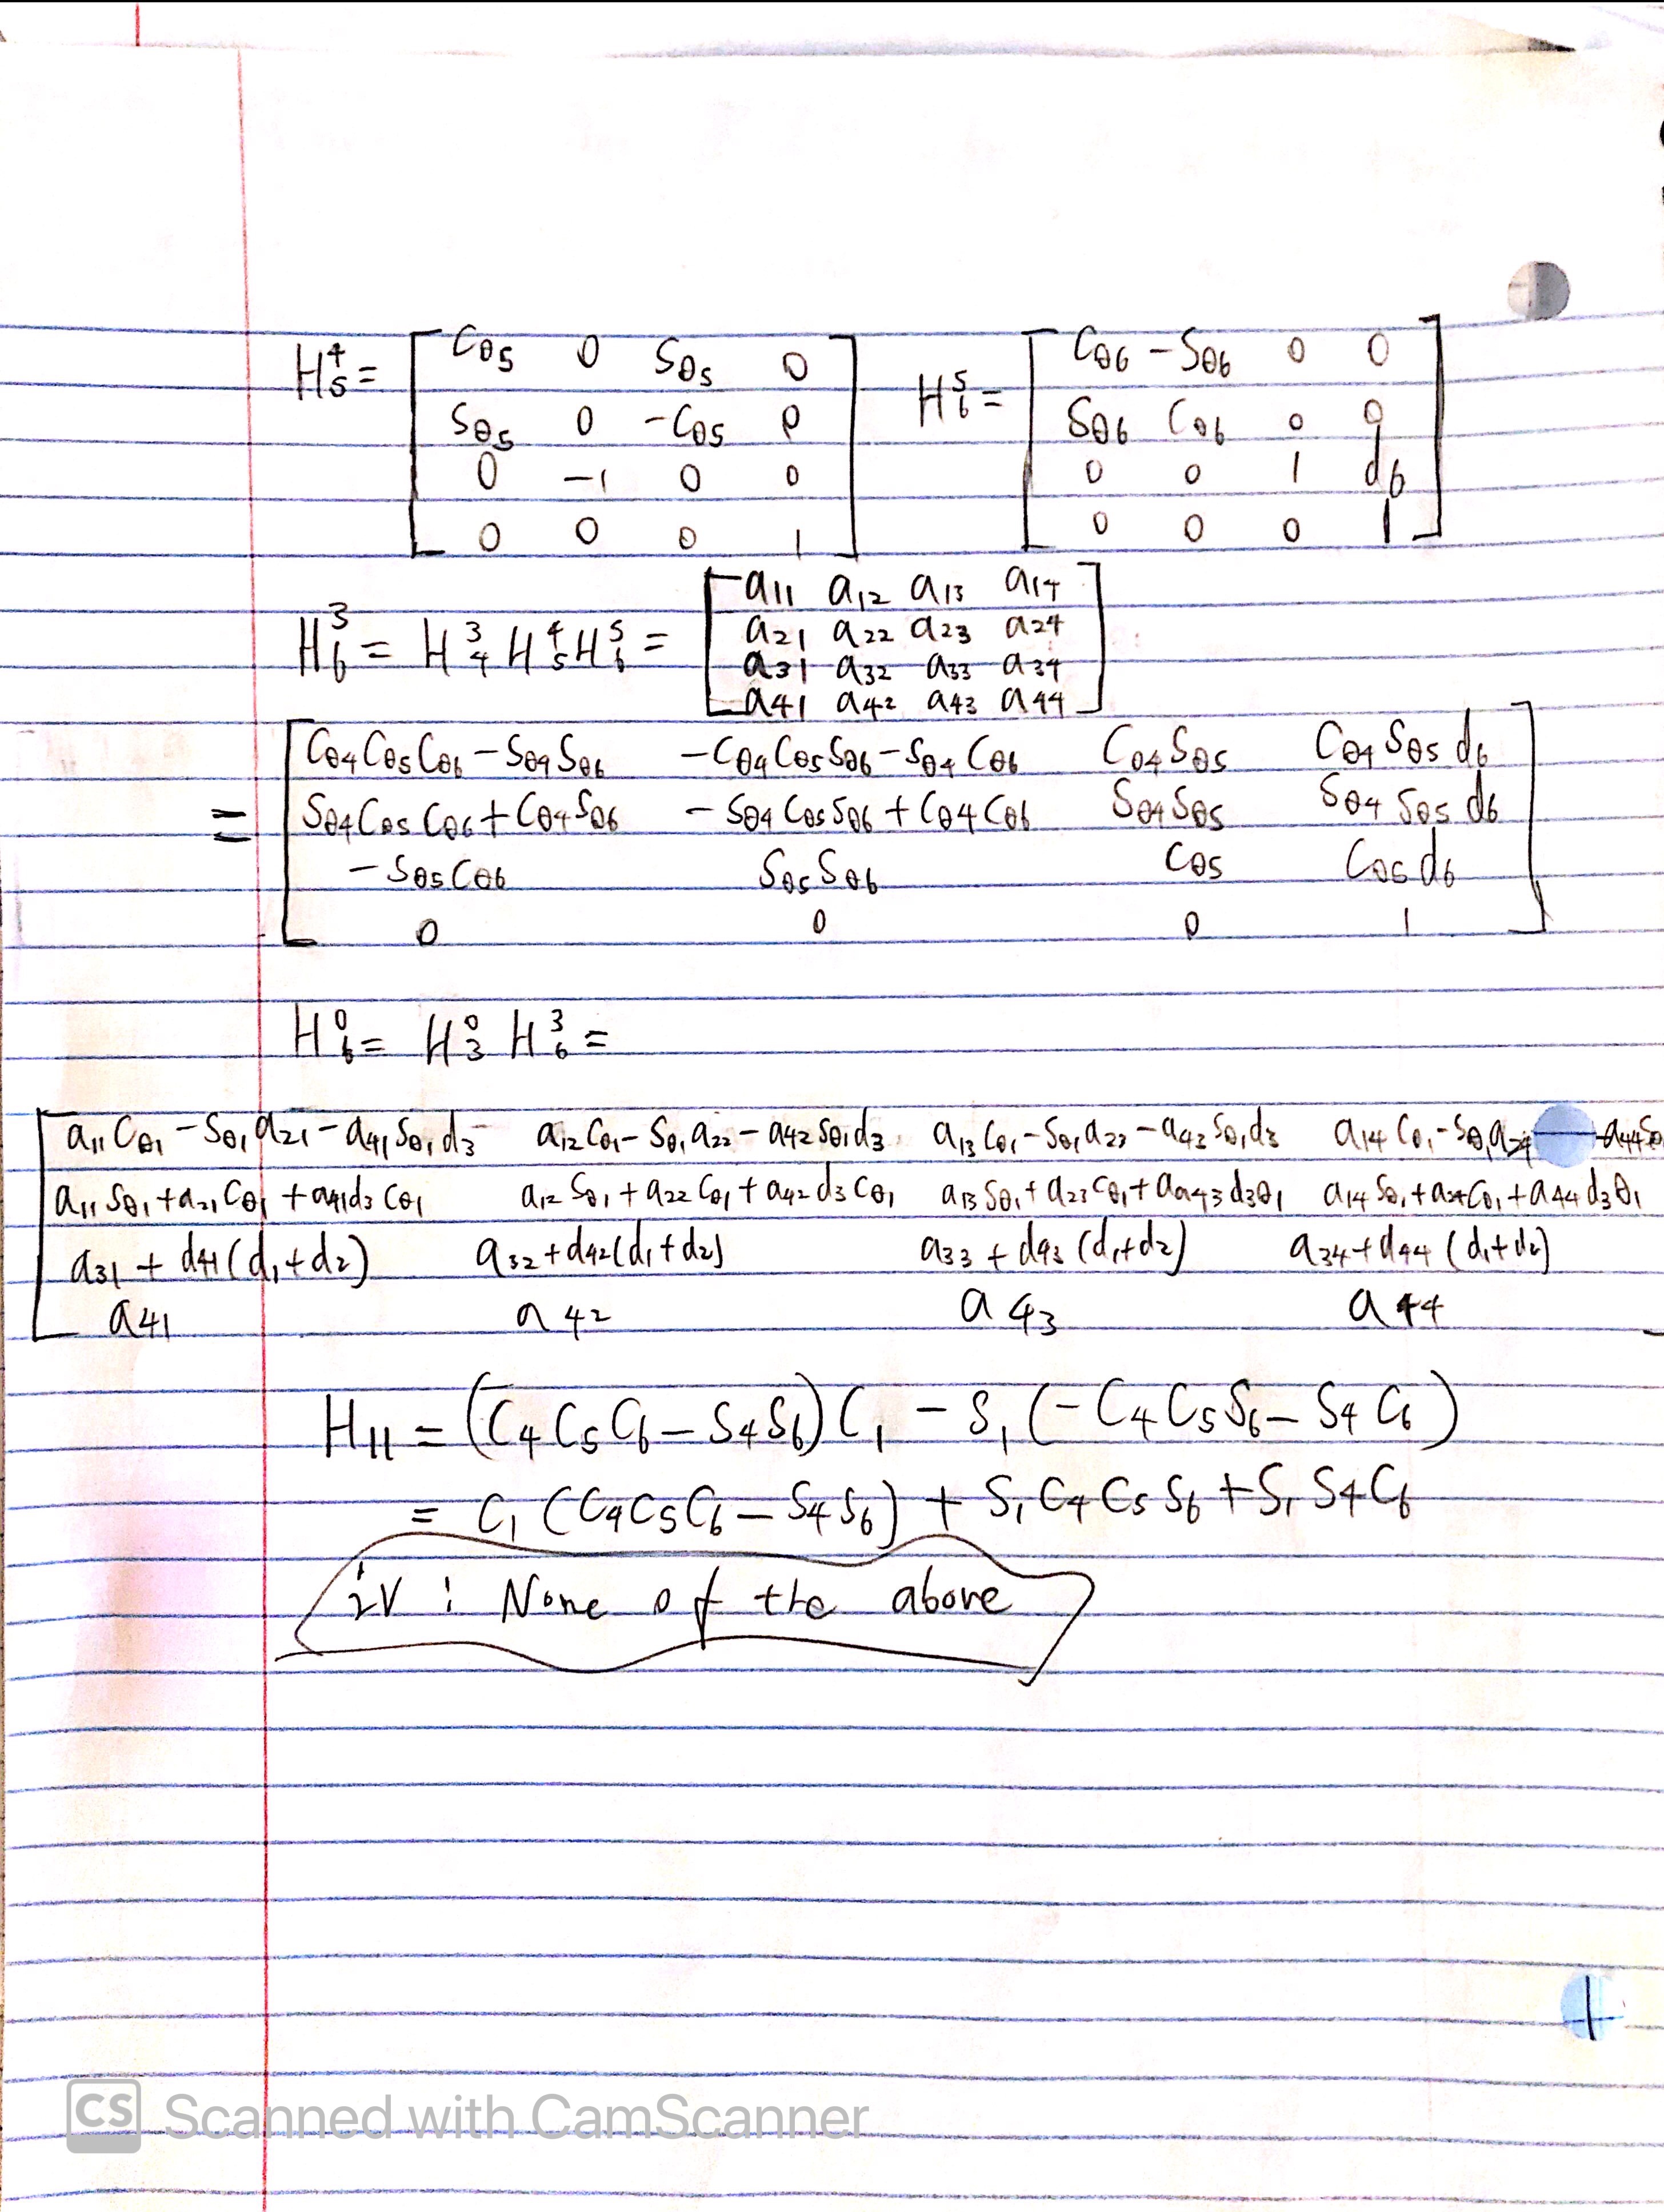 H⁴₅ = [ Cθ5 0 Sθ5 0 H⁵₆ = [ Cθ6 -Sθ6 0 0
Sθ5 0 -Cθ5 0 Sθ6 Cθ6 0 0
0 -1 0 0 0 0 1 d6
0 0 0 1 ] 0 0 0 1 ]
H³₆ = H³₄ H⁴₅ H⁵₆ = [ a11 a12 a13 a14
a21 a22 a23 a24
a31 a32 a33 a34
a41 a42 a43 a44 ]
= [ Cθ4 Cθ5 Cθ6 - Sθ4 Sθ6 -Cθ4 Cθ5 Sθ6 - Sθ4 Cθ6 Cθ4 Sθ5 Cθ4 Sθ5 d6
Sθ4 Cθ5 Cθ6 + Cθ4 Sθ6 -Sθ4 Cθ5 Sθ6 + Cθ4 Cθ6 Sθ4 Sθ5 Sθ4 Sθ5 d6
-Sθ5 Cθ6 Sθ5 Sθ6 Cθ5 Cθ5 d6
0 0 0 1 ]
H⁰₆ = H⁰₃ H³₆ =
[ a11 Cθ1 - Sθ1 a21 - a41 Sθ1 d3 a12 Cθ1 - Sθ1 a22 - a42 Sθ1 d3 a13 Cθ1 - Sθ1 a23 - a43 Sθ1 d3 a14 Cθ1 - Sθ1 a24 - a44 Sθ
a11 Sθ1 + a21 Cθ1 + a41 d3 Cθ1 a12 Sθ1 + a22 Cθ1 + a42 d3 Cθ1 a13 Sθ1 + a23 Cθ1 + aa43 d3 θ1 a14 Sθ1 + a24 Cθ1 + a44 d3 θ1
a31 + d41 (d1 + d2) a32 + d42 (d1 + d2) a33 + d43 (d1 + d2) a34 + d44 (d1 + d2)
a41 a42 a43 a44
H11 = (C4 C5 C6 - S4 S6) C1 - S1 (-C4 C5 S6 - S4 C6)
= C1 (C4 C5 C6 - S4 S6) + S1 C4 C5 S6 + S1 S4 C6
iv : None of the above
CS Scanned with CamScanner